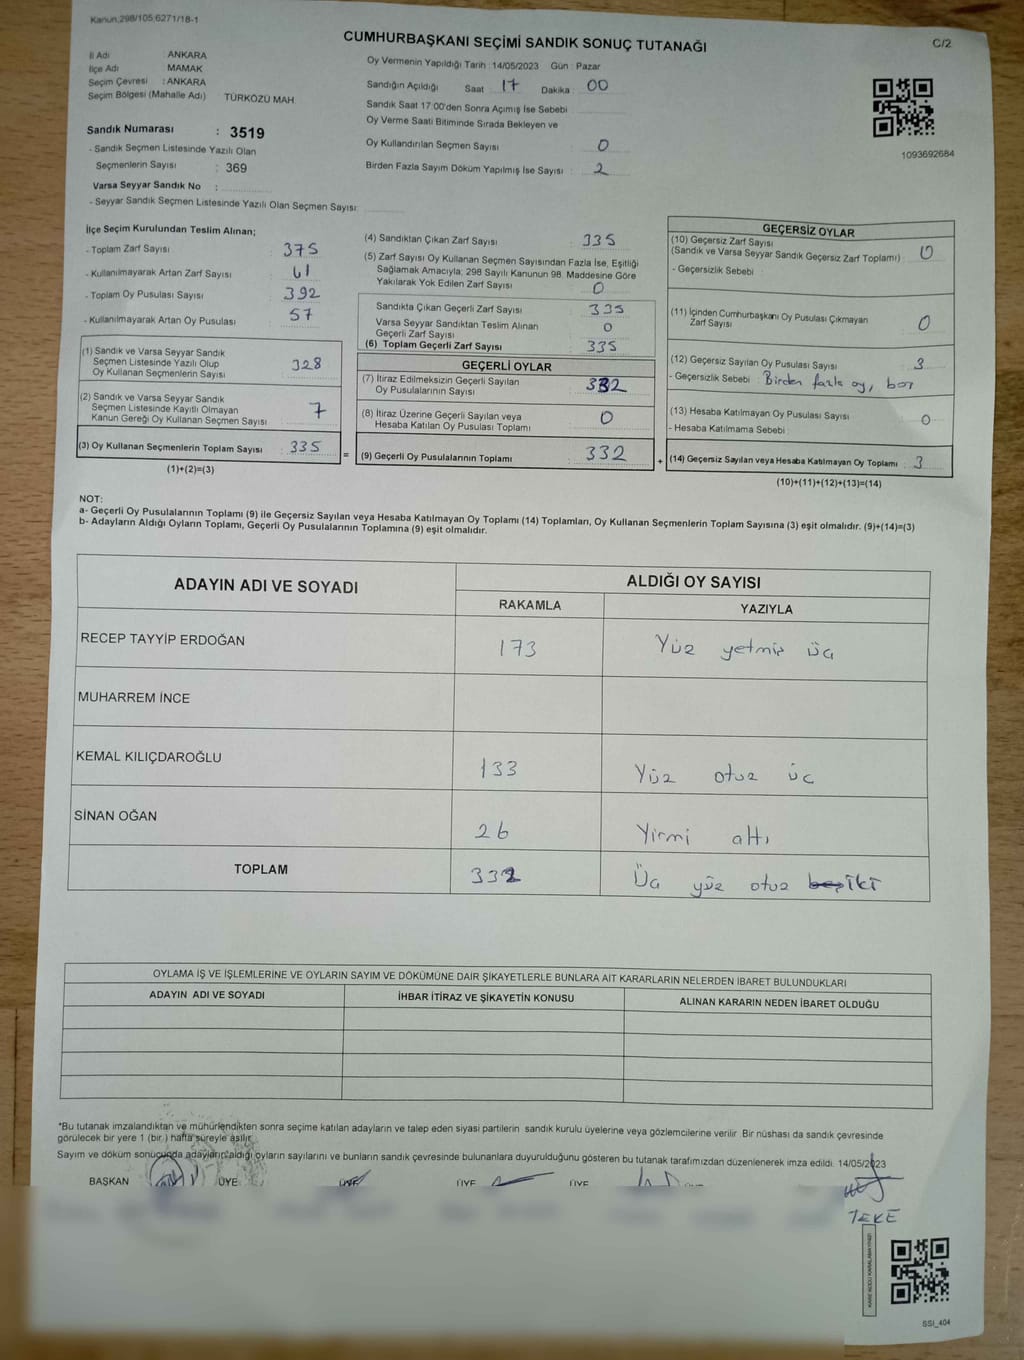 Kanun:298/105;6271/18-1
CUMHURBAŞKANI SEÇİMİ SANDIK SONUÇ TUTANAĞI
C/2
İl Adı : ANKARA
İlçe Adı : MAMAK
Seçim Çevresi : ANKARA
Seçim Bölgesi (Mahalle Adı) TÜRKÖZÜ MAH
Sandık Numarası : 3519
- Sandık Seçmen Listesinde Yazılı Olan
Seçmenlerin Sayısı : 369
Varsa Seyyar Sandık No :
- Seyyar Sandık Seçmen Listesinde Yazılı Olan Seçmen Sayısı:
Oy Vermenin Yapıldığı Tarih : 14/05/2023 Gün : Pazar
Sandığın Açıldığı Saat : 17 Dakika : 00
Sandık Saat 17:00'den Sonra Açımış İse Sebebi
Oy Verme Saati Bitiminde Sırada Bekleyen ve
Oy Kullandırılan Seçmen Sayısı : 0
Birden Fazla Sayım Döküm Yapılmış İse Sayısı : 2
1093692684
İlçe Seçim Kurulundan Teslim Alınan;
- Toplam Zarf Sayısı : 375
- Kullanılmayarak Artan Zarf Sayısı : 61
- Toplam Oy Pusulası Sayısı : 392
- Kullanılmayarak Artan Oy Pusulası : 57
(1) Sandık ve Varsa Seyyar Sandık
Seçmen Listesinde Yazılı Olup
Oy Kullanan Seçmenlerin Sayısı : 328
(2) Sandık ve Varsa Seyyar Sandık
Seçmen Listesinde Kayıtlı Olmayan
Kanun Gereği Oy Kullanan Seçmen Sayısı : 7
(3) Oy Kullanan Seçmenlerin Toplam Sayısı : 335
=
(1)+(2)=(3)
(4) Sandıktan Çıkan Zarf Sayısı : 335
(5) Zarf Sayısı Oy Kullanan Seçmen Sayısından Fazla İse, Eşitliği
Sağlamak Amacıyla; 298 Sayılı Kanunun 98. Maddesine Göre
Yakılarak Yok Edilen Zarf Sayısı : 0
Sandıkta Çıkan Geçerli Zarf Sayısı : 335
Varsa Seyyar Sandıktan Teslim Alınan
Geçerli Zarf Sayısı : 0
(6) Toplam Geçerli Zarf Sayısı : 335
GEÇERLİ OYLAR
(7) İtiraz Edilmeksizin Geçerli Sayılan
Oy Pusulalarının Sayısı : 332
(8) İtiraz Üzerine Geçerli Sayılan veya
Hesaba Katılan Oy Pusulası Toplamı : 0
(9) Geçerli Oy Pusulalarının Toplamı : 332
+
GEÇERSİZ OYLAR
(10) Geçersiz Zarf Sayısı
(Sandık ve Varsa Seyyar Sandık Geçersiz Zarf Toplamı) : 0
- Geçersizlik Sebebi :
(11) İçinden Cumhurbaşkanı Oy Pusulası Çıkmayan
Zarf Sayısı : 0
(12) Geçersiz Sayılan Oy Pusulası Sayısı : 3
- Geçersizlik Sebebi : Birden fazla oy,
(13) Hesaba Katılmayan Oy Pusulası Sayısı : 0
- Hesaba Katılmama Sebebi :
(14) Geçersiz Sayılan veya Hesaba Katılmayan Oy Toplamı : 3
(10)+(11)+(12)+(13)=(14)
NOT:
a- Geçerli Oy Pusulalarının Toplamı (9) ile Geçersiz Sayılan veya Hesaba Katılmayan Oy Toplamı (14) Toplamları, Oy Kullanan Seçmenlerin Toplam Sayısına (3) eşit olmalıdır. (9)+(14)=(3)
b- Adayların Aldığı Oyların Toplamı, Geçerli Oy Pusulalarının Toplamına (9) eşit olmalıdır.
ADAYIN ADI VE SOYADI
ALDIĞI OY SAYISI
RAKAMLA YAZIYLA
RECEP TAYYİP ERDOĞAN 173 Yüz yetmiş üç
MUHARREM İNCE
KEMAL KILIÇDAROĞLU 133 Yüz otuz üç
SİNAN OĞAN 26 Yirmi altı
TOPLAM 332 Üç yüz otuz beş iki
OYLAMA İŞ VE İŞLEMLERİNE VE OYLARIN SAYIM VE DÖKÜMÜNE DAİR ŞİKAYETLERLE BUNLARA AİT KARARLARIN NELERDEN İBARET BULUNDUKLARI
ADAYIN ADI VE SOYADI İHBAR İTİRAZ VE ŞİKAYETİN KONUSU ALINAN KARARIN NEDEN İBARET OLDUĞU
*Bu tutanak imzalandıktan ve mühürlendikten sonra seçime katılan adayların ve talep eden siyasi partilerin sandık kurulu üyelerine veya gözlemcilerine verilir. Bir nüshası da sandık çevresinde
görülecek bir yere 1 (bir ) hafta süreyle asılır.
Sayım ve döküm sonucunda adayların aldığı oyların sayılarını ve bunların sandık çevresinde bulunanlara duyurulduğunu gösteren bu tutanak tarafımızdan düzenlenerek imza edildi. 14/05/2023
BAŞKAN ÜYE ÜYE ÜYE ÜYE
TEKE
SSI_404